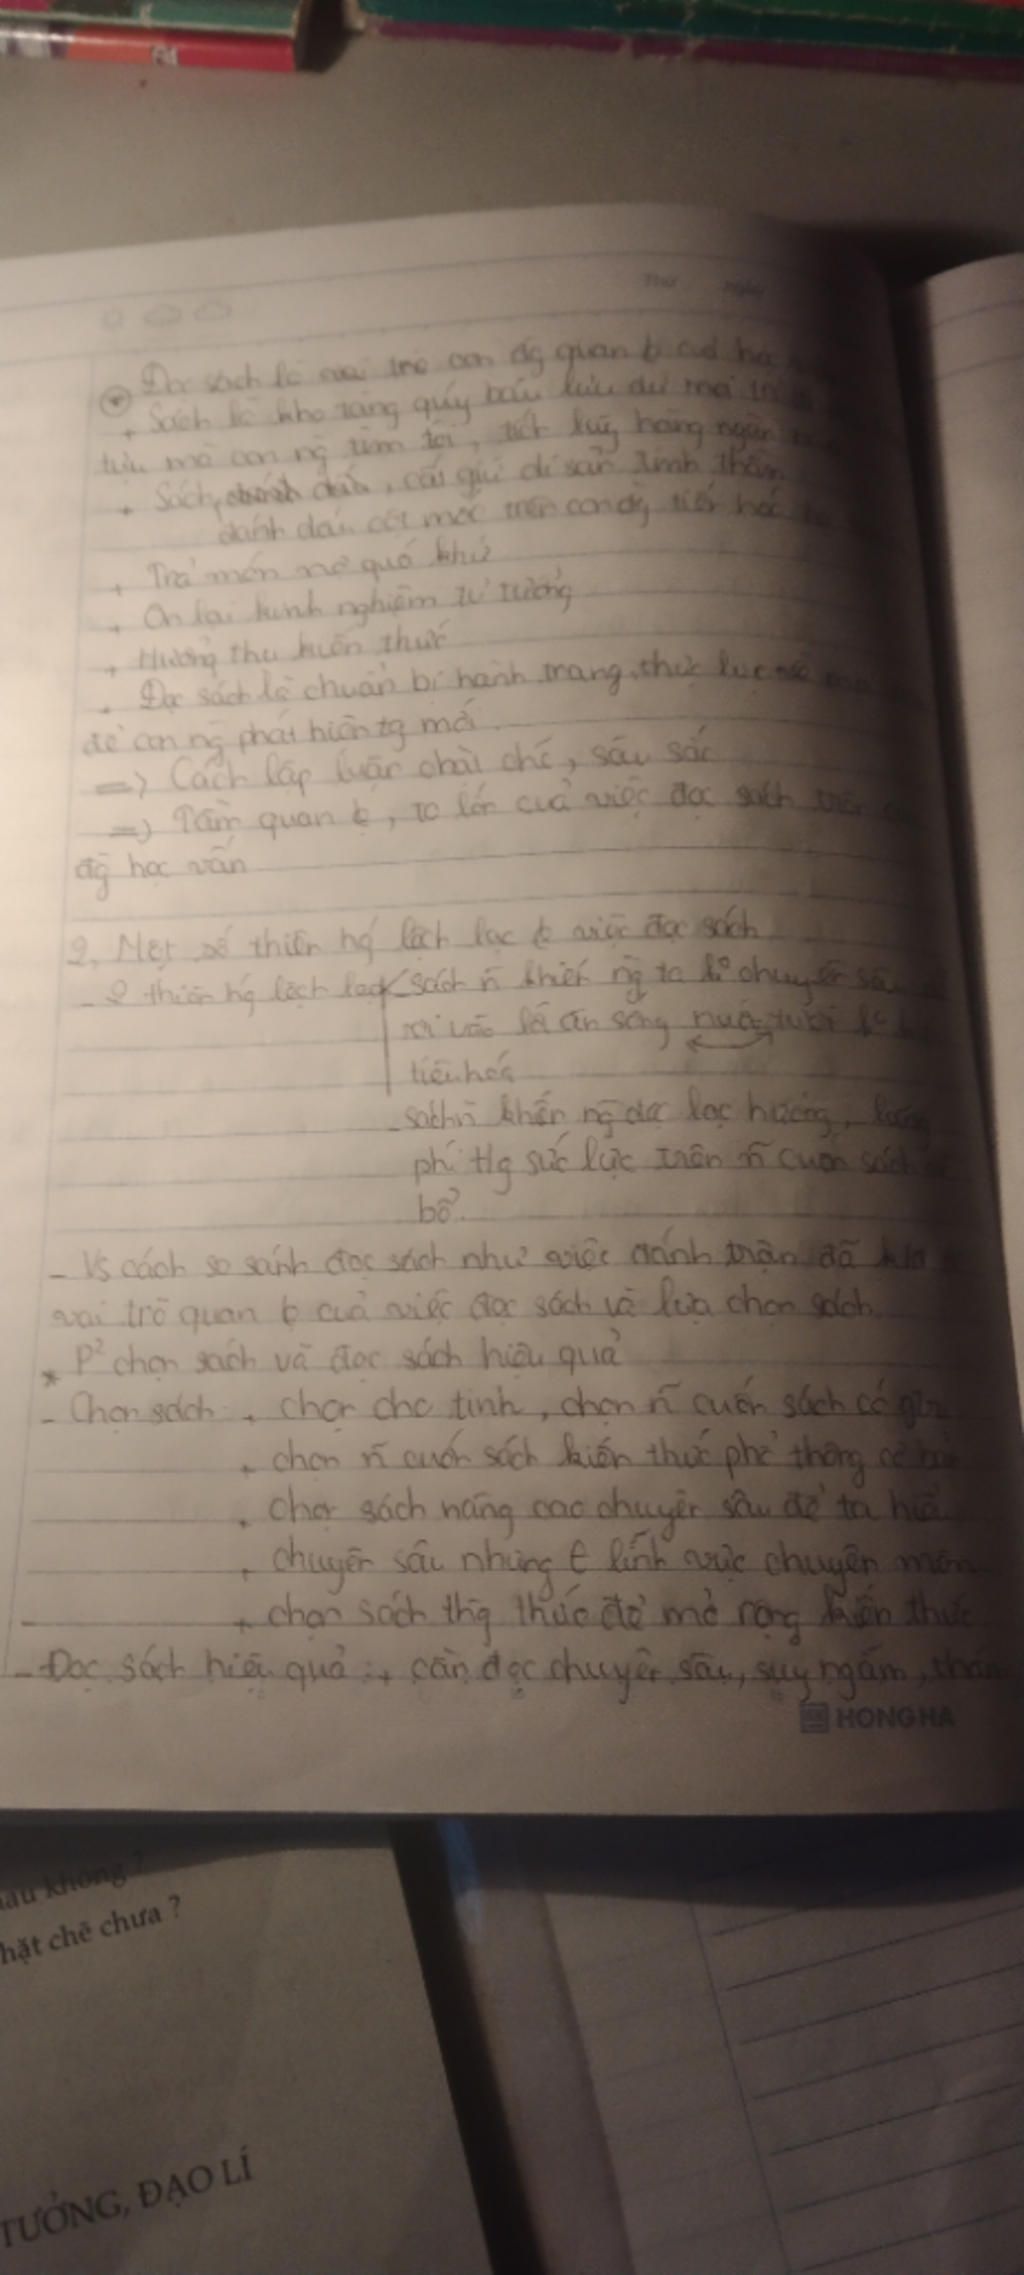 Thứ Ngày
Đọc sách là vai trò con đg quan t của
+ Sách là kho tàng quý báu lưu
tựu mà con ng tìm tòi, tích luỹ hàng ngàn
+ Sách, cất giữ di sản tinh thần
đánh dấu cột mốc trên con đg tiến hoá
+ Trả món nợ quá khứ
+ Ôn lại kinh nghiệm tư tưởng
+ Hưởng thụ kiến thức
. Đọc sách là chuẩn bị hành trang, thực lực
để con ng phát hiện tg mới
=> Cách lập luận chặt chẽ, sâu sắc
=> Tầm quan t, to lớn của việc đọc sách trên
đg học vấn
2, Một số thiên hg lệch lạc t việc đọc sách
- 2 thiên hg lệch lạc sách ñ khiến ng ta ko chuyên sâu
rơi vào lối ăn sống nuốt tươi
tiêu hoá
- sách ñ khiến ng đọc lạc hướng, lãng
phí tg sức lực trên ñ cuốn sách
bổ.
- Vs cách so sánh đọc sách như việc đánh trận đã
vai trò quan t của việc đọc sách và lựa chọn sách
* P² chọn sách và đọc sách hiệu quả
- Chọn sách: + chọn cho tinh, chọn ñ cuốn sách có
+ chọn ñ cuốn sách kiến thức phổ thông
+ chọn sách nâng cao chuyên sâu để ta
+ chuyên sâu những t lĩnh vực chuyên môn
+ chọn sách thg thức để mở rộng kiến thức
- Đọc sách hiệu quả: + cần đọc chuyên sâu, suy ngẫm,
HONG HA
không ?
hặt chẽ chưa ?
TƯỞNG, ĐẠO LÍ